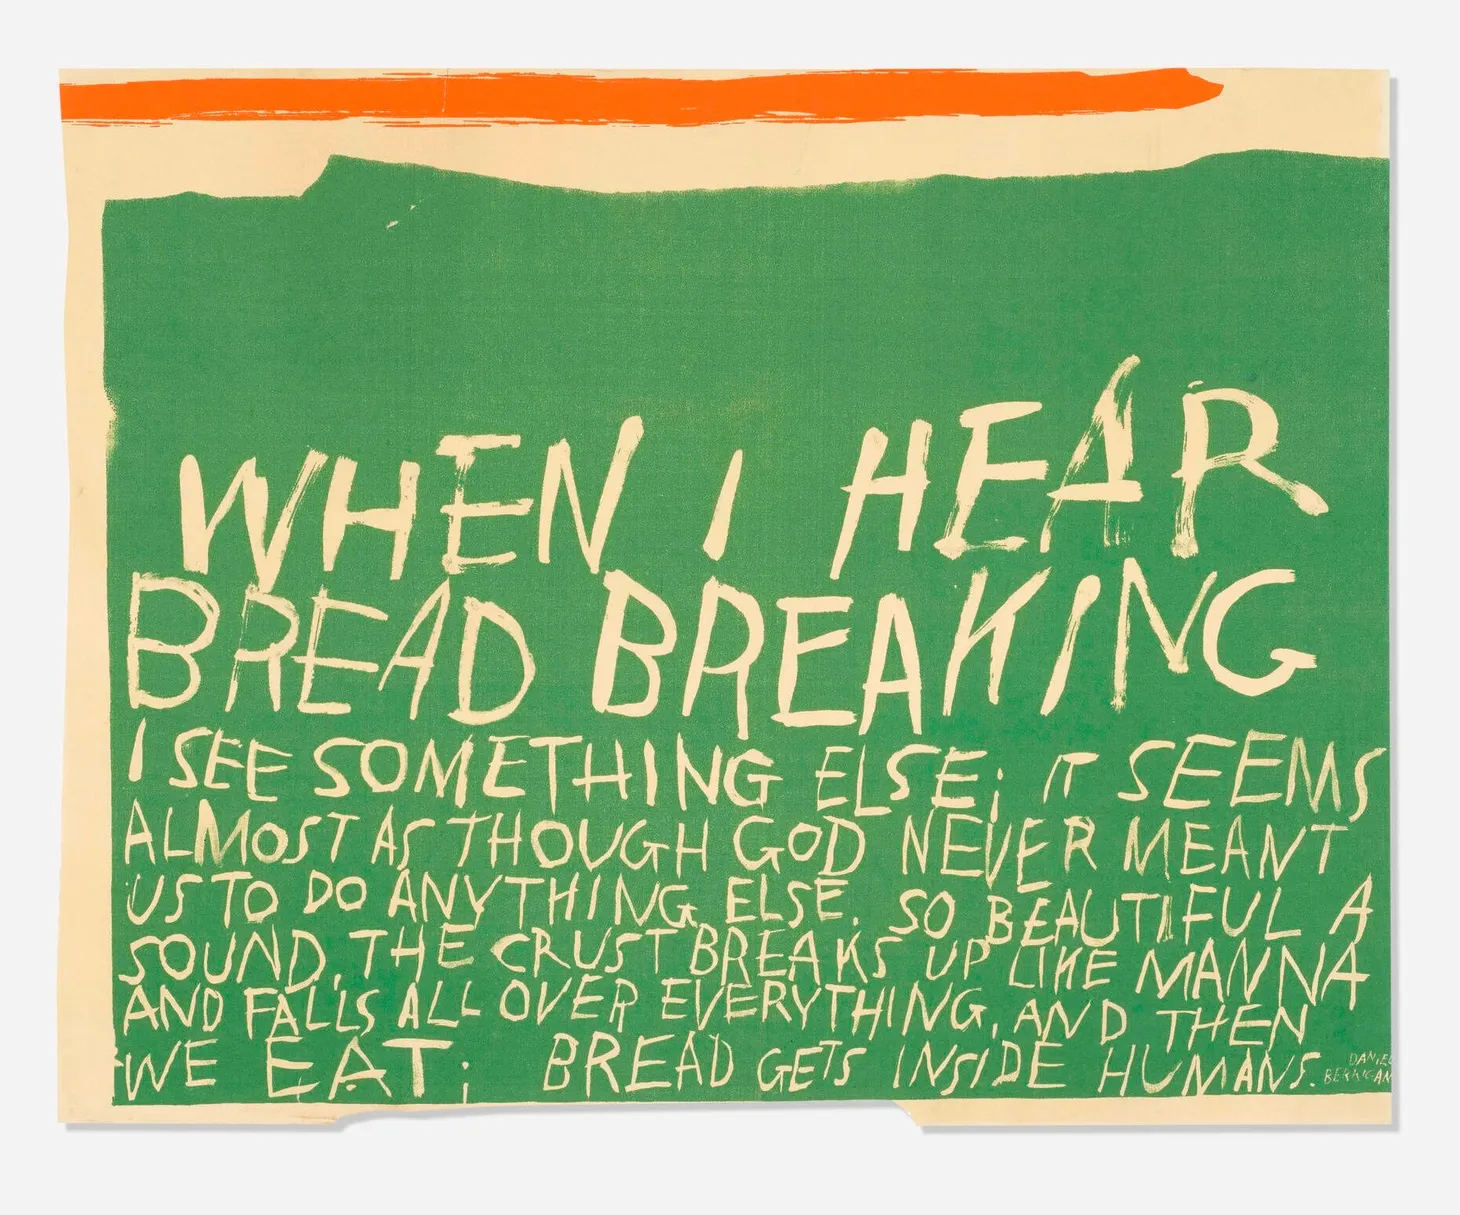 WHEN I HEAR
BREAD BREAKING
I SEE SOMETHING ELSE; IT SEEMS
ALMOST AS THOUGH GOD NEVER MEANT
US TO DO ANYTHING ELSE. SO BEAUTIFUL A
SOUND, THE CRUST BREAKS UP LIKE MANNA
AND FALLS ALL OVER EVERYTHING, AND THEN
WE EAT; BREAD GETS INSIDE HUMANS.
DANIEL
BERRIGAN